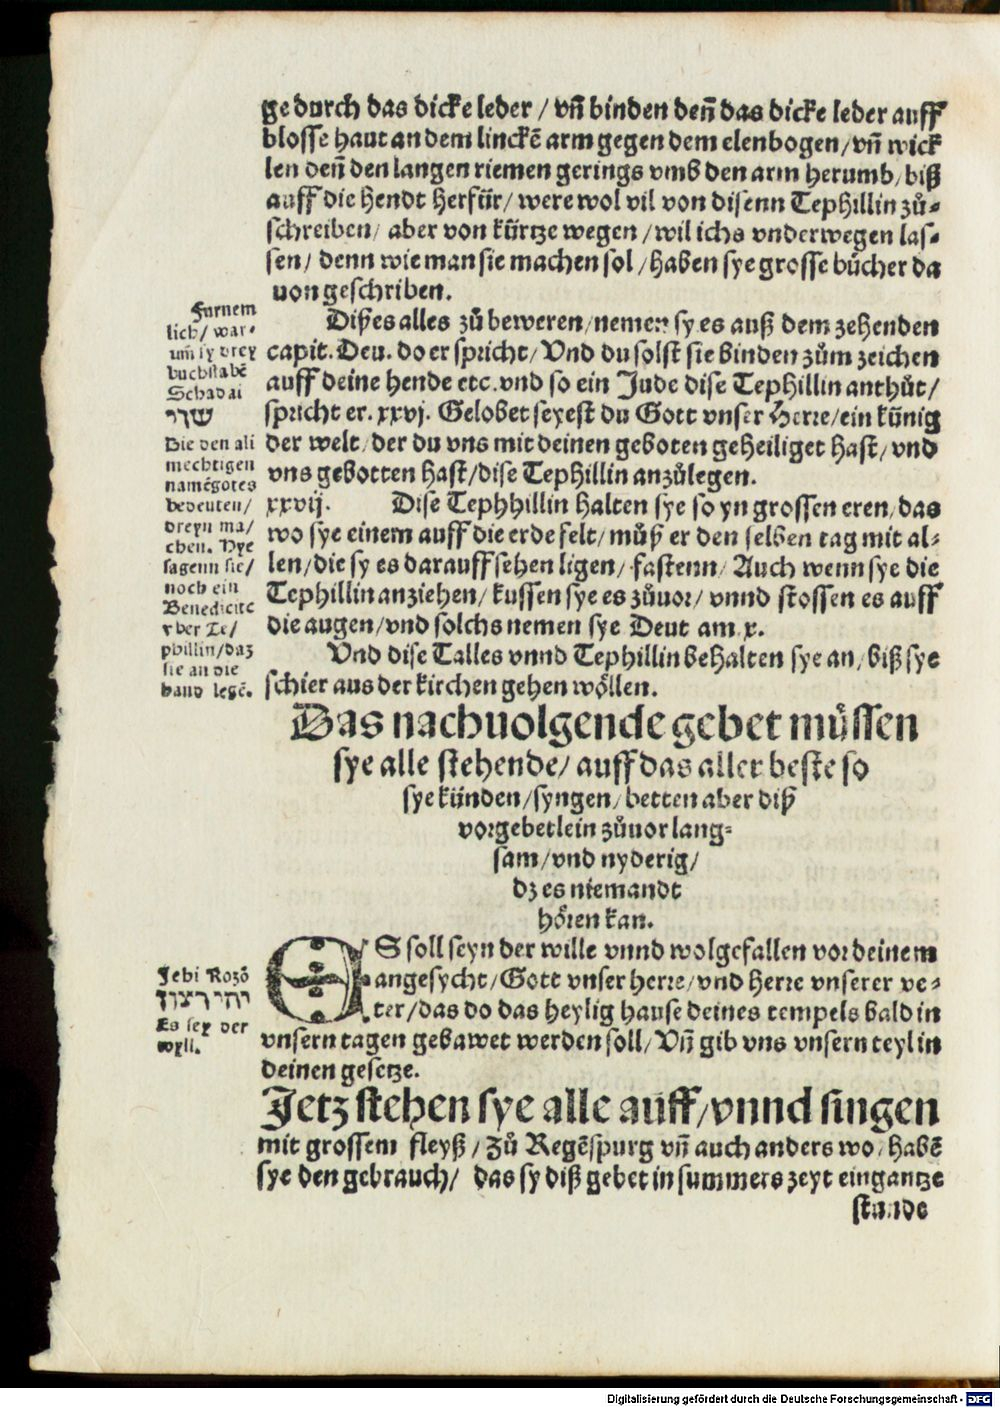 ge durch das dicke leder / vñ binden deñ das dicke leder auff
blosse haut an dem linckẽ arm gegen dem elenbogen / vñ wick
len deñ den langen riemen gerings vmb den arm herumb / biß
auff die hendt herfür / were wol vil von disenn Tephillin zů⸗
schreiben / aber von kürtze wegen / wil ichs vnderwegen las⸗
sen / denn wie man sie machen sol / haben sye grosse bücher da
uon geschriben.
Dises alles zů beweren / nemen sy es auß dem zehenden
capit. Deu. do er spricht / Vnd du solst sie binden zům zeichen
auff deine hende etc. vnd so ein Jude dise Tephillin anthůt /
spricht er. xxvj. Gelobet seyest du Gott vnser Herre / ein künig
der welt / der du vns mit deinen geboten geheiliget hast / vnd
vns gebotten hast / dise Tephillin anzůlegen.
xxvij. Dise Tephhillin halten sye so yn grossen eren / das
wo sye einem auff die erde felt / můß er den selben tag mit al⸗
len / die sy es darauff sehen ligen / fastenn / Auch wenn sye die
Tephillin anziehen / kussen sye es zůuor / vnnd stossen es auff
die augen / vnd solchs nemen sye Deut am. x.
Vnd dise Talles vnnd Tephillin behalten sye an / biß sye
schier aus der kirchen gehen wöllen.
Furnem
lich / war⸗
um̃ sy drey
buchstabẽ
Schadai
שדי
Die den all
mechtigen
namẽ gotes
bedeuten /
dreyn ma /
chen. Hye
sagenn sie /
noch ein
Benedicite
vber Te /
phillin / daz
sie an die
hand legẽ.
Das nachuolgende gebet müssen
sye alle stehende / auff das aller beste so
sye künden / syngen / betten aber diß
vorgebetlein zůuor lang⸗
sam / vnd nyderig /
dz es niemandt
hören kan.
ES soll seyn der wille vnnd wolgefallen vor deinem
angesycht / Gott vnser herre / vnd herre vnserer ve⸗
ter / das do das heylig hause deines tempels bald in
vnsern tagen gebawet werden soll / Vñ gib vns vnsern teyl in
deinen gesetze.
Jehi Rozõ
יהי רצון
Es sey der
wyll.
Jetz stehen sye alle auff / vnnd singen
mit grossem fleyß / Zů Regẽspurg vñ auch anders wo / habẽ
sye den gebrauch / das sy diß gebet in summers zeyt ein gantze
stunde
Digitalisierung gefördert durch die Deutsche Forschungsgemeinschaft - DFG